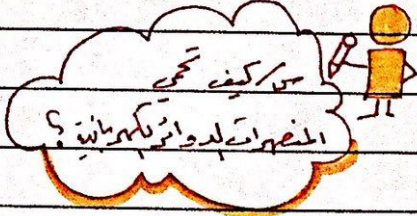 س/ كيف تحمي
المنصهرات الدوائر الكهربائية؟